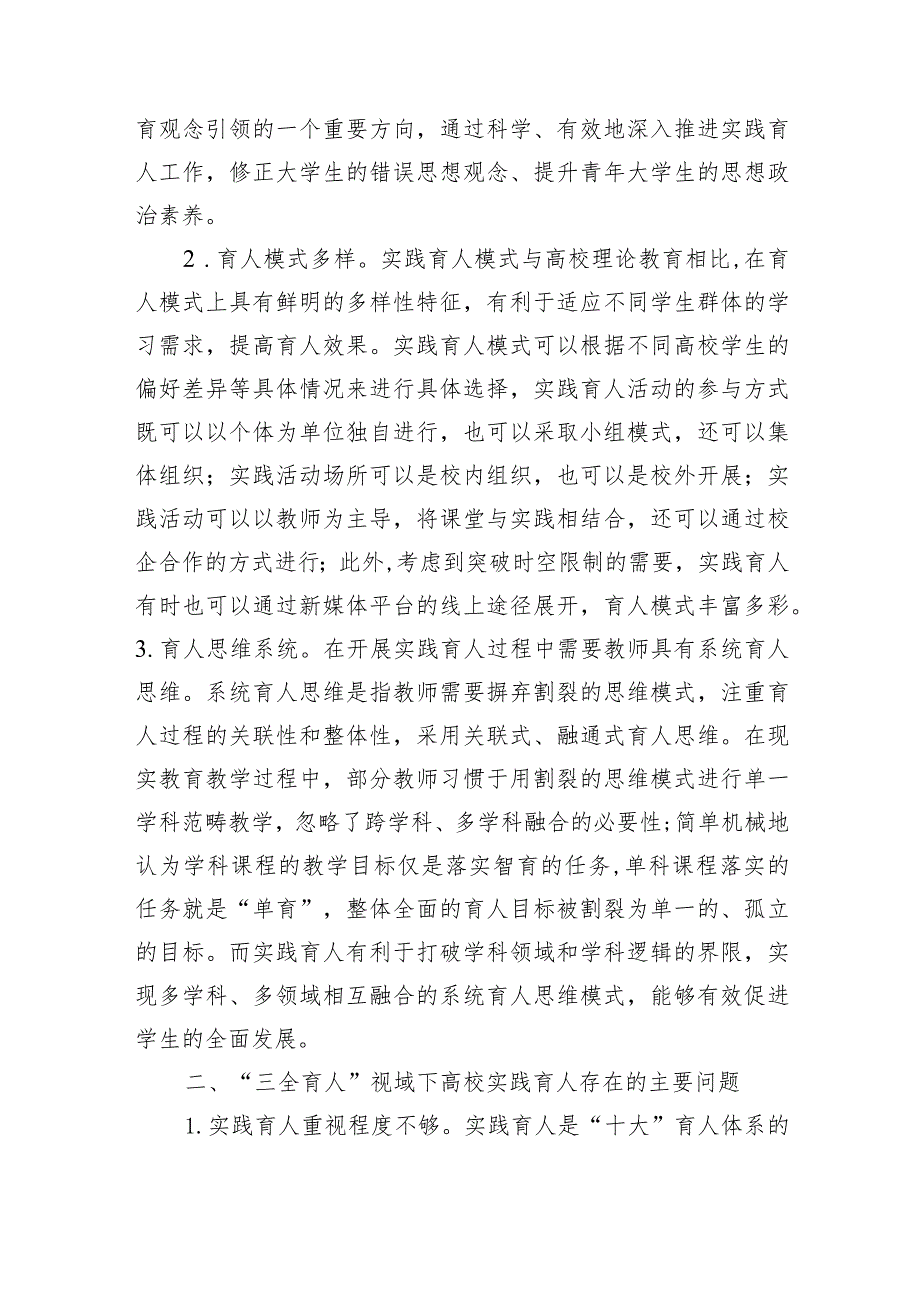 育观念引领的一个重要方向，通过科学、有效地深入推进实践育
人工作，修正大学生的错误思想观念、提升青年大学生的思想政
治素养。
2 . 育人模式多样。实践育人模式与高校理论教育相比,在育
人模式上具有鲜明的多样性特征，有利于适应不同学生群体的学
习需求，提高育人效果。实践育人模式可以根据不同高校学生的
偏好差异等具体情况来进行具体选择，实践育人活动的参与方式
既可以以个体为单位独自进行，也可以采取小组模式，还可以集
体组织；实践活动场所可以是校内组织，也可以是校外开展；实
践活动可以以教师为主导，将课堂与实践相结合，还可以通过校
企合作的方式进行；此外,考虑到突破时空限制的需要，实践育人
有时也可以通过新媒体平台的线上途径展开，育人模式丰富多彩。
3. 育人思维系统。在开展实践育人过程中需要教师具有系统育人
思维。系统育人思维是指教师需要摒弃割裂的思维模式，注重育
人过程的关联性和整体性，采用关联式、融通式育人思维。在现
实教育教学过程中，部分教师习惯于用割裂的思维模式进行单一
学科范畴教学，忽略了跨学科、多学科融合的必要性;简单机械地
认为学科课程的教学目标仅是落实智育的任务,单科课程落实的
任务就是“单育”，整体全面的育人目标被割裂为单一的、孤立
的目标。而实践育人有利于打破学科领域和学科逻辑的界限，实
现多学科、多领域相互融合的系统育人思维模式，能够有效促进
学生的全面发展。
二、“三全育人”视域下高校实践育人存在的主要问题
1. 实践育人重视程度不够。实践育人是“十大”育人体系的